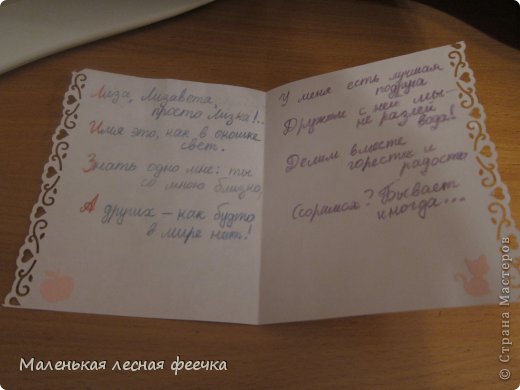 Лиза, Лизавета,
просто Лизка!..
Имя это, как в окошке
свет.
Знать одно мне: ты
со мною близко,
А других – как будто
в мире нет!
У меня есть лучшая
подруга
Дружим с ней мы –
не разлей
вода!
Делим вместе
горесть и
радость
Ссоримся? Бывает
иногда...
Маленькая лесная феечка
© Страна Мастеров